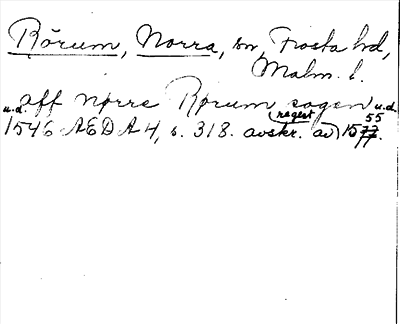 Rörum, Norra, sn, Frosta hd,
Malm. l.
aff nørre Rørum sogen u.d.
u.d. 1546 AEDA 4, s. 318. (regest avskr. av) 1555.